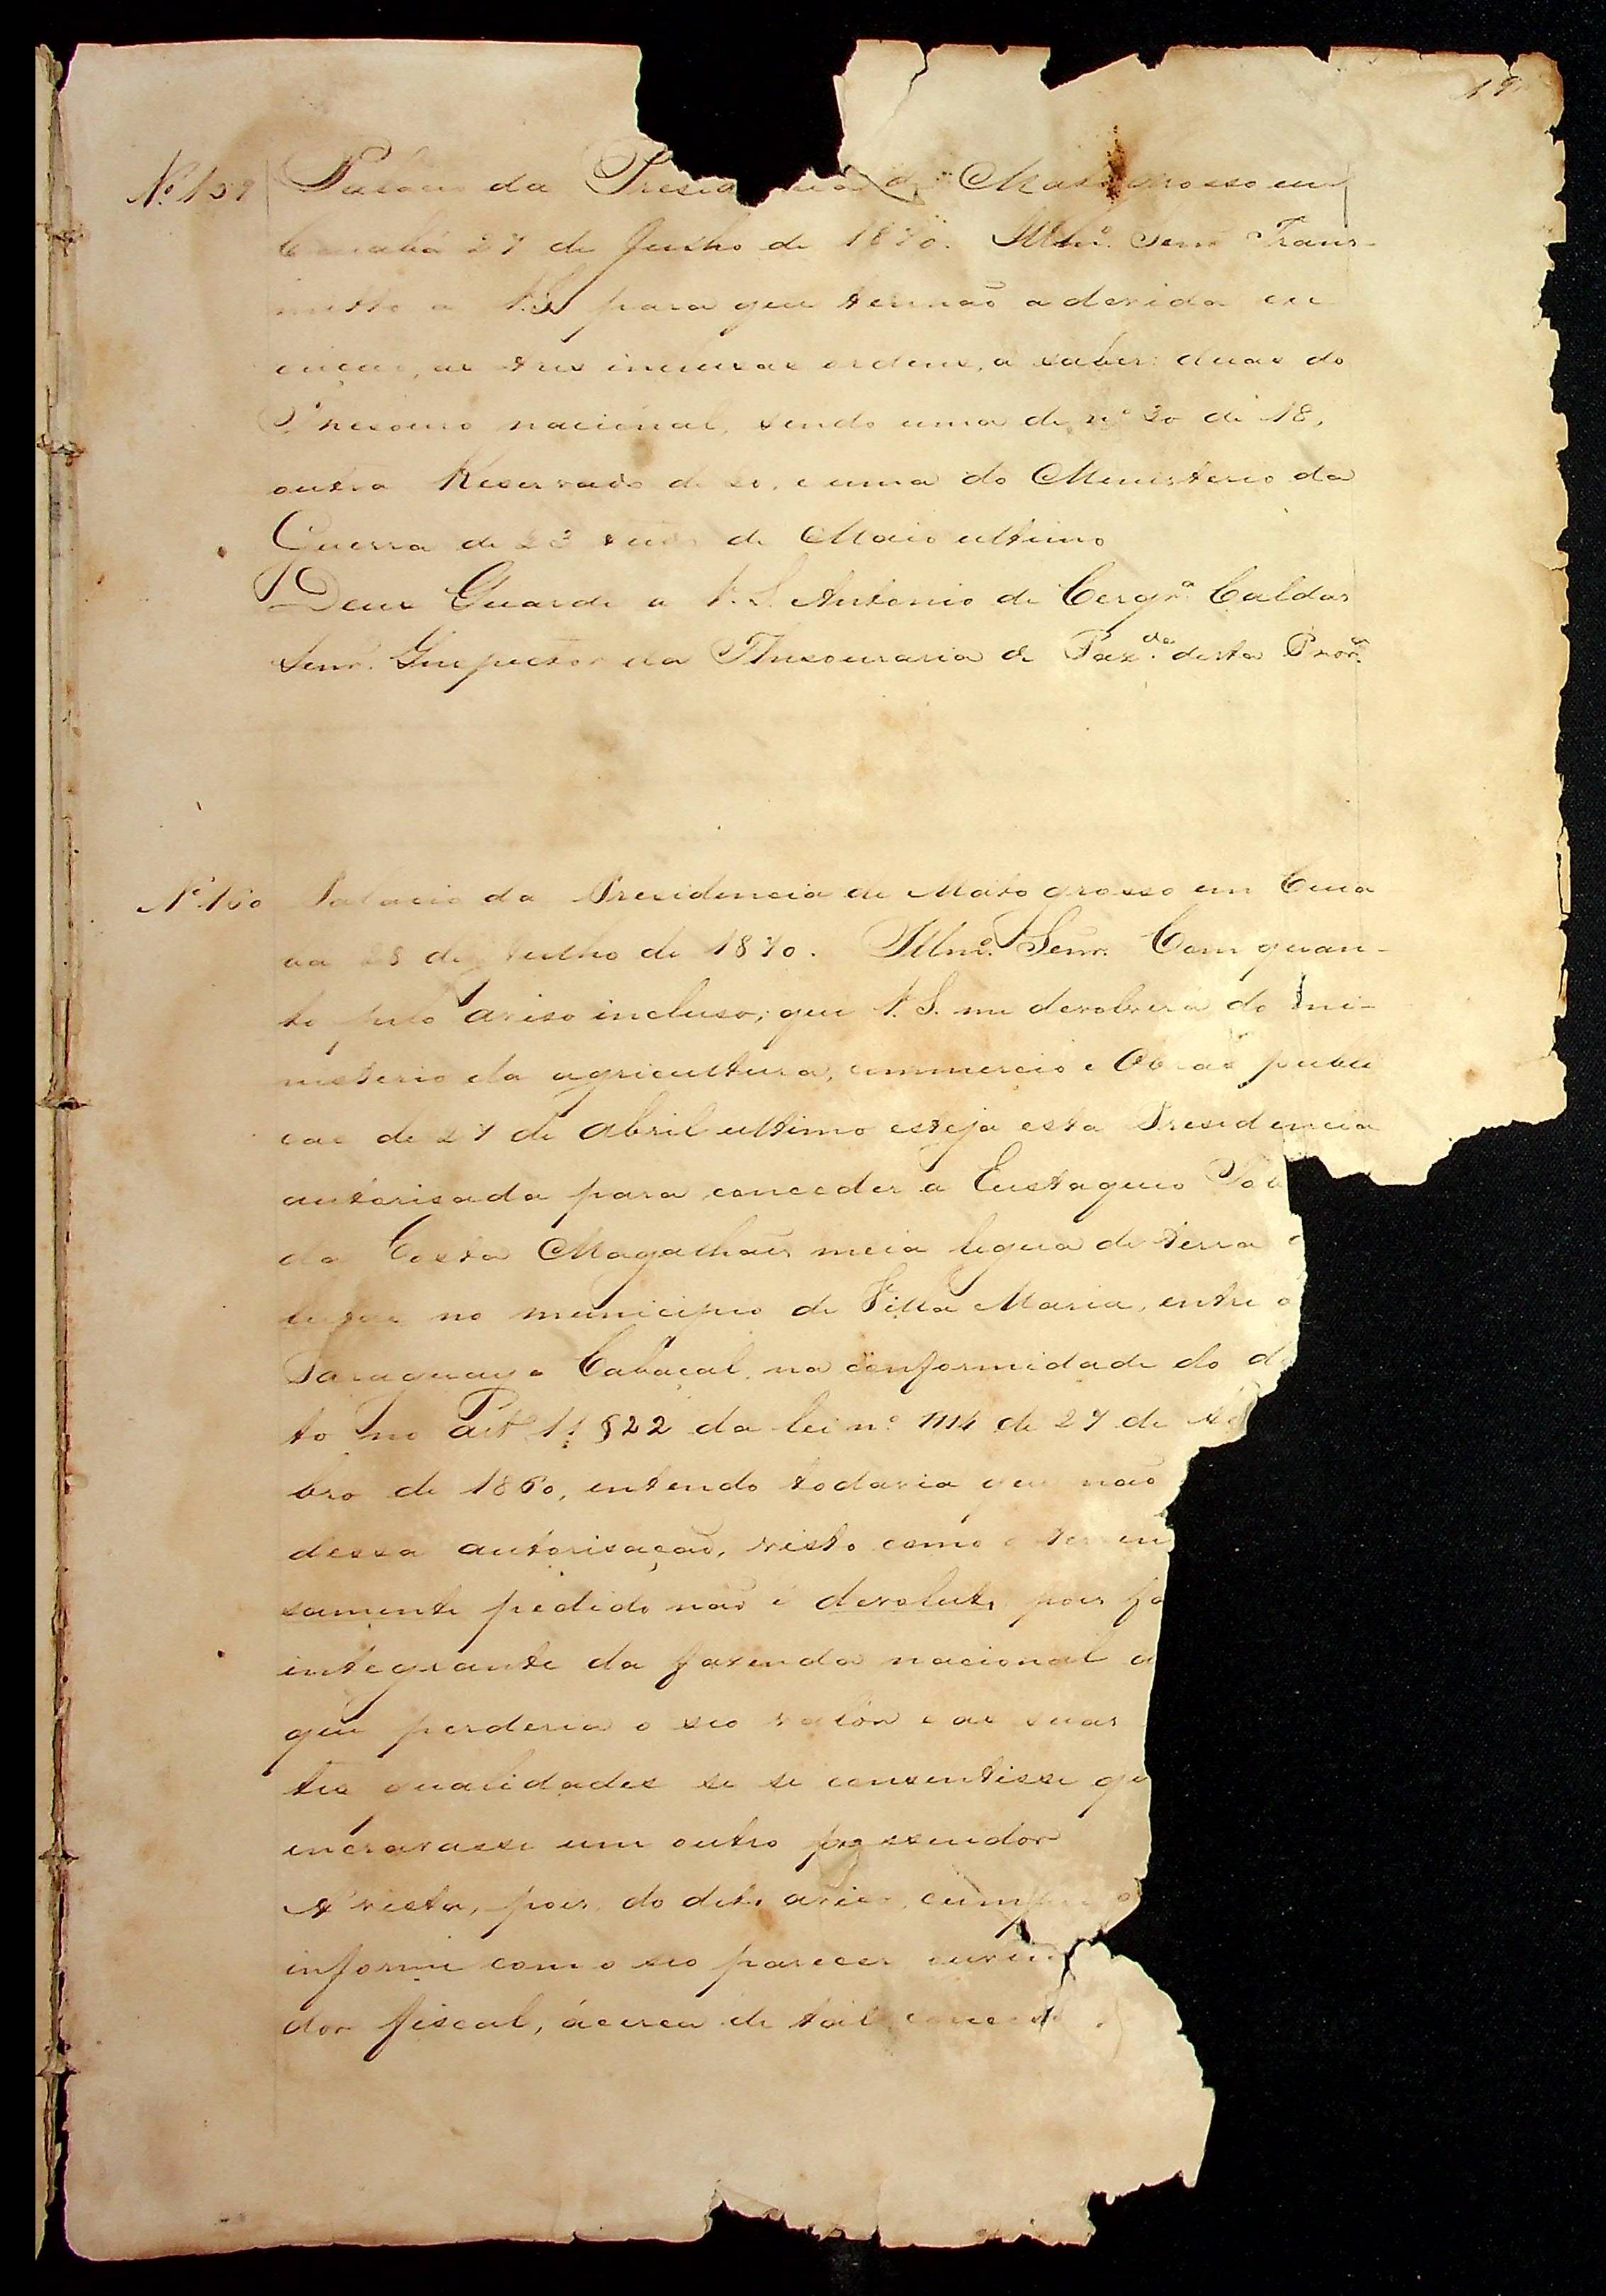 19
Nº 159 Palacio da Presidencia de Mato grosso em
Cuiabá 27 de Julho de 1870. Illmº. Senr. Trans-
mitto a V.S. para que tenhão a devida exe
cução, as tres inclusas ordens, a saber: duas do
Thesouro nacional, sendo uma de nº 30 de 18,
outra Reservada de 20, e uma do Ministerio da
Guerra de 23 tudo de Maio ultimo
Deus Guarde a V. S. Antonio de Cerqrª. Caldas
Senr. Inspector da Thesouraria de Fazda. desta Provª.
Nº 160 Palacio da Presidencia de Mato grosso em Cuia
bá 28 de Julho de 1870. Illmº. Senr. Com quan-
to pelo aviso incluso, que V. S. me devolverá do Mi-
nisterio da agricultura, commercio e Obras publi
cas de 27 de Abril ultimo esteja esta Presidencia
autorisada para conceder a Eustaquio
da Costa Magalhães meia legua de terra
lutas no municipio de Villa Maria, entre o
Paraguay e Cabaçal, na conformidade do
to no Art. 11 § 22 da lei nº 1114 de 27 de
bro de 1860, entendo todavia que não
dessa autorisação, visto como o
samente pedido não é devoluto, pois
integrante da fazenda nacional
que perderia o seo valôr e as suas
tes qualidades se se consentisse
encravasse um outro possuidor
A vista, pois, do dito aviso, cumpre
informe com o seo parecer
dor fiscal, ácerca de tal